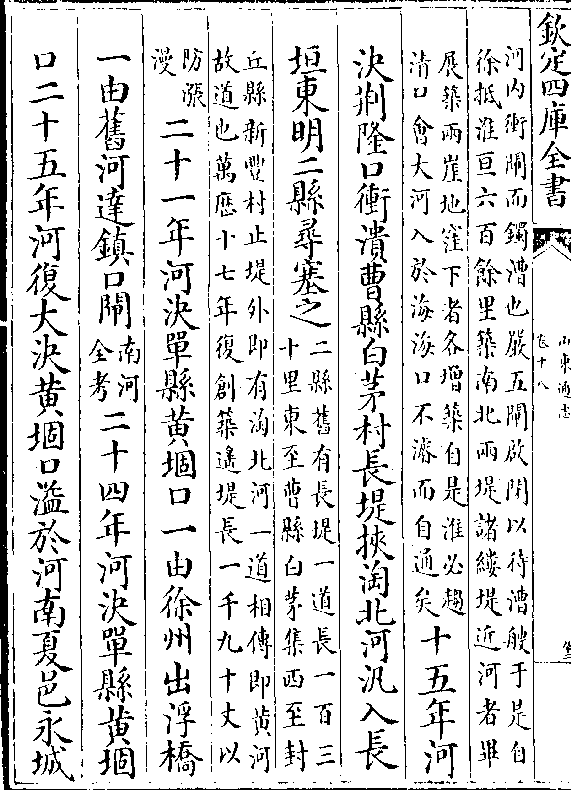 欽定四庫全書
山東通志
卷十八
河内衝閘而鐲漕也嚴五閘啟閉以待漕艘于是自
徐抵淮亘六百餘里築南北兩堤諸縷堤近河者畢
展築兩崖地窪下者各增築自是淮必趨
清口會大河入於海海口不濬而自通矣
十五年河
決荆隆口衝潰曹縣白茅村長堤挾淘北河汎入長
垣東明二縣尋塞之
二縣舊有長堤一道長一百三
十里東至曹縣白茅集西至封
丘縣新豐村止堤外即有淘北河一道相傳即黄河
故道也萬厯十七年復創築遙堤長一千九十丈以
防漲
漫
二十一年河決單縣黄堌口一由徐州出浮橋
一由舊河達鎮口閘
南河
全考
二十四年河決單縣黄堌
口二十五年河復大決黄堌口溢於河南夏邑永城